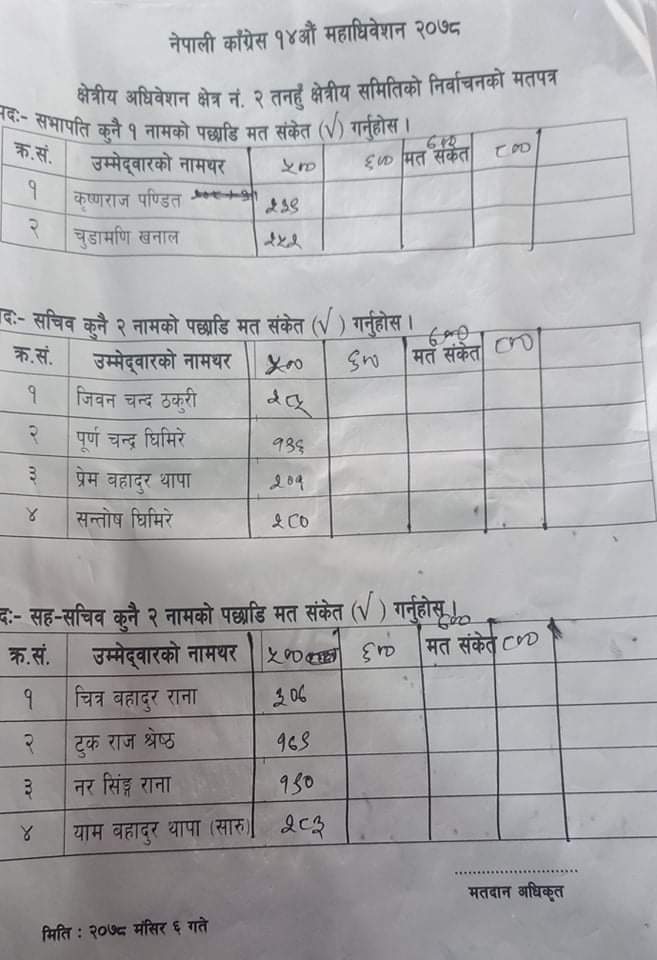 नेपाली काँग्रेस १४औं महाधिवेशन २०७८
क्षेत्रीय अधिवेशन क्षेत्र नं. २ तनहुँ क्षेत्रीय समितिको निर्वाचनको मतपत्र
पदः- सभापति कुनै १ नामको पछाडि मत संकेत (√) गर्नुहोस ।
क्र.सं. उम्मेद्वारको नामथर ५०० ६०० मत संकेत ७०० ८००
१ कृष्णराज पण्डित २३९
२ चुडामणि खनाल २५२
दः- सचिव कुनै २ नामको पछाडि मत संकेत (√) गर्नुहोस ।
क्र.सं. उम्मेद्वारको नामथर ५०० ६०० मत संकेत ७०० ८००
१ जिवन चन्द ठकुरी
२ पूर्ण चन्द्र घिमिरे १३६
३ प्रेम वहादुर थापा २०१
४ सन्तोष घिमिरे २८०
दः- सह-सचिव कुनै २ नामको पछाडि मत संकेत (√) गर्नुहोस् ।
क्र.सं. उम्मेद्वारको नामथर ५०० ६०० मत संकेत ७०० ८००
१ चित्र वहादुर राना ३०६
२ टुक राज श्रेष्ठ १६९
३ नर सिंङ्ग राना १९०
४ याम वहादुर थापा (सारु) २८३
मतदान अधिकृत
मिति : २०७८ मंसिर ६ गते